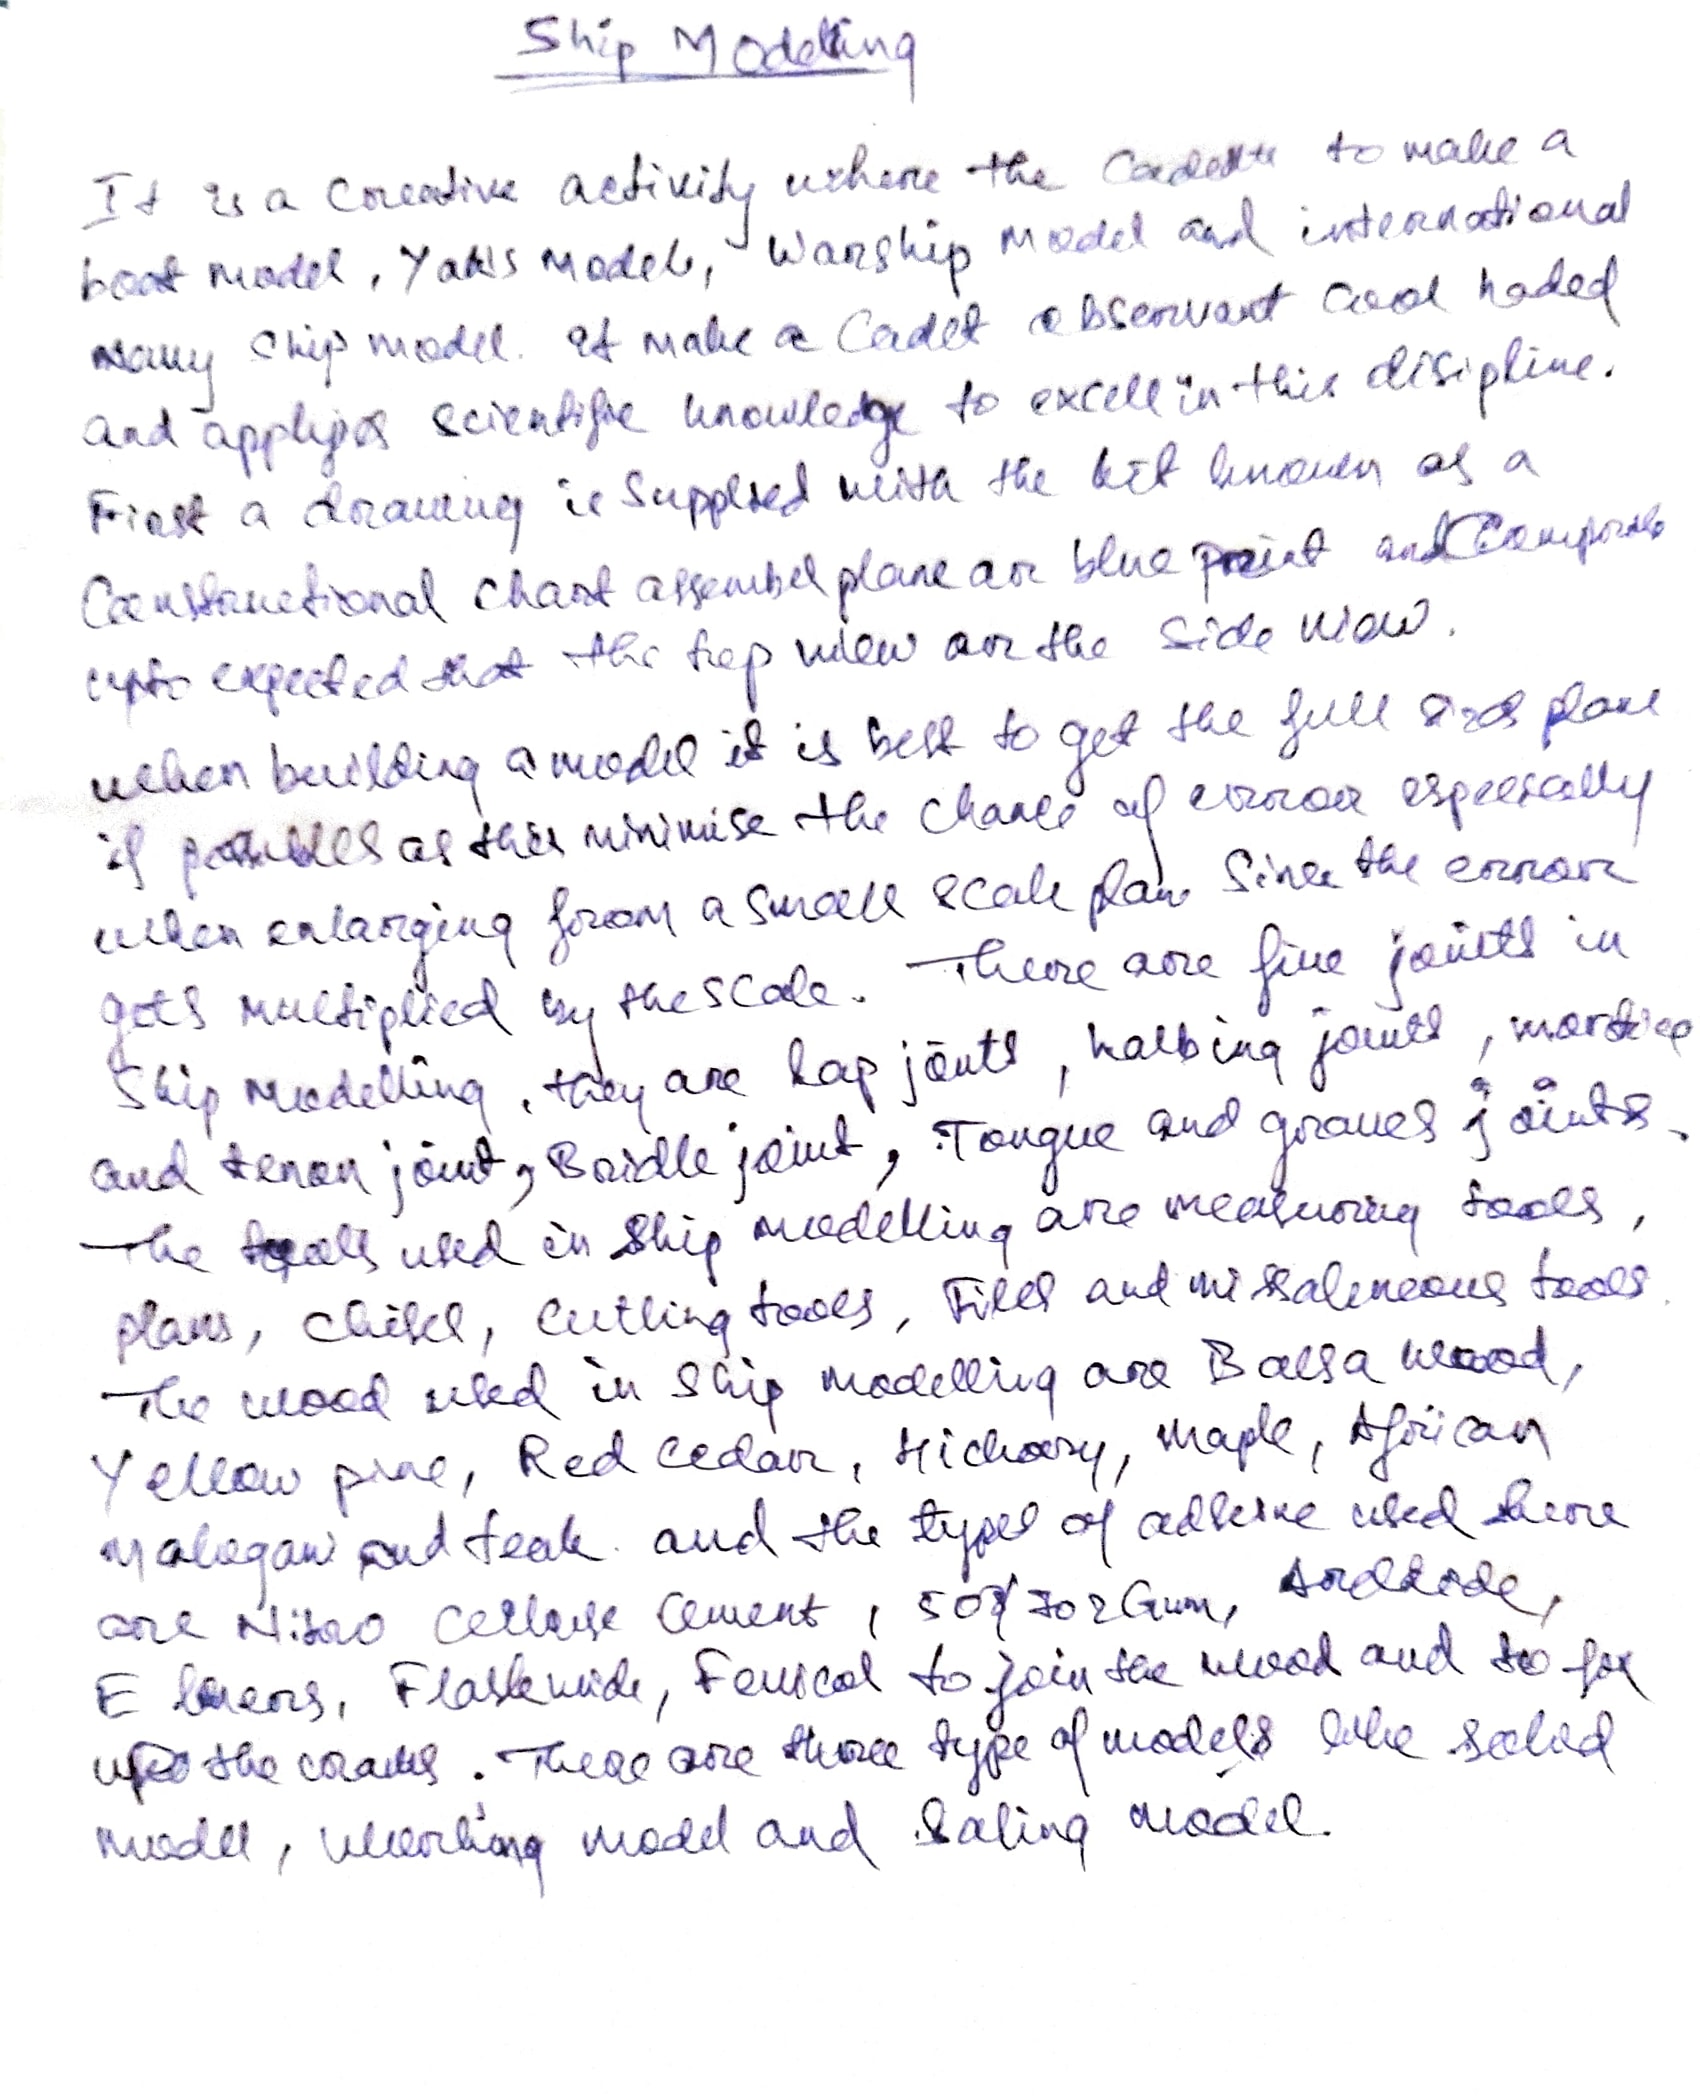 Ship Modelling
It is a Creative activity where the Cadets to make a
boat model, Yatts Models, Warship Model and international
many ship model. It make a Cadet observant Cool haded
and applys scientific knowledge to excell in this disipline.
First a drawing is supplied with the kit known as a
Constructional chart assembel plane or blue print and
upto expected that the top view or the side view.
when building a model it is best to get the full size plane
if as this minimise the chance of error especially
when enlarging from a small scale plan Since the error
gets multiplied by the scale. There are five joints in
Ship Modelling, they are Lap joints, halbing joints, mortice
and tenon joint, Bridle joint, Tongue and groves joints.
The tools used in Ship modelling are measuring tools,
plans, chisel, Cutting tools, Files and missaleneous tools.
The wood used in ship modelling are Balsa wood,
Yellow pine, Red cedar, Hickory, Maple, African
Mahogani and teak. and the types of adhesive used there
are Nitro Cellulose Cement, Gum,
Fevicol to join the wood and to fix
upto the cracks. There are three type of models like solid
model, working model and Saling model.